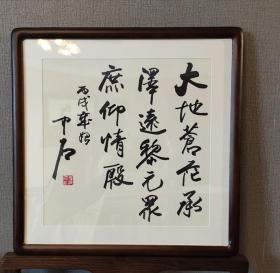 大地蒼茫承
澤遠黎元眾
庶仰情殷
丙戌歲始
中石